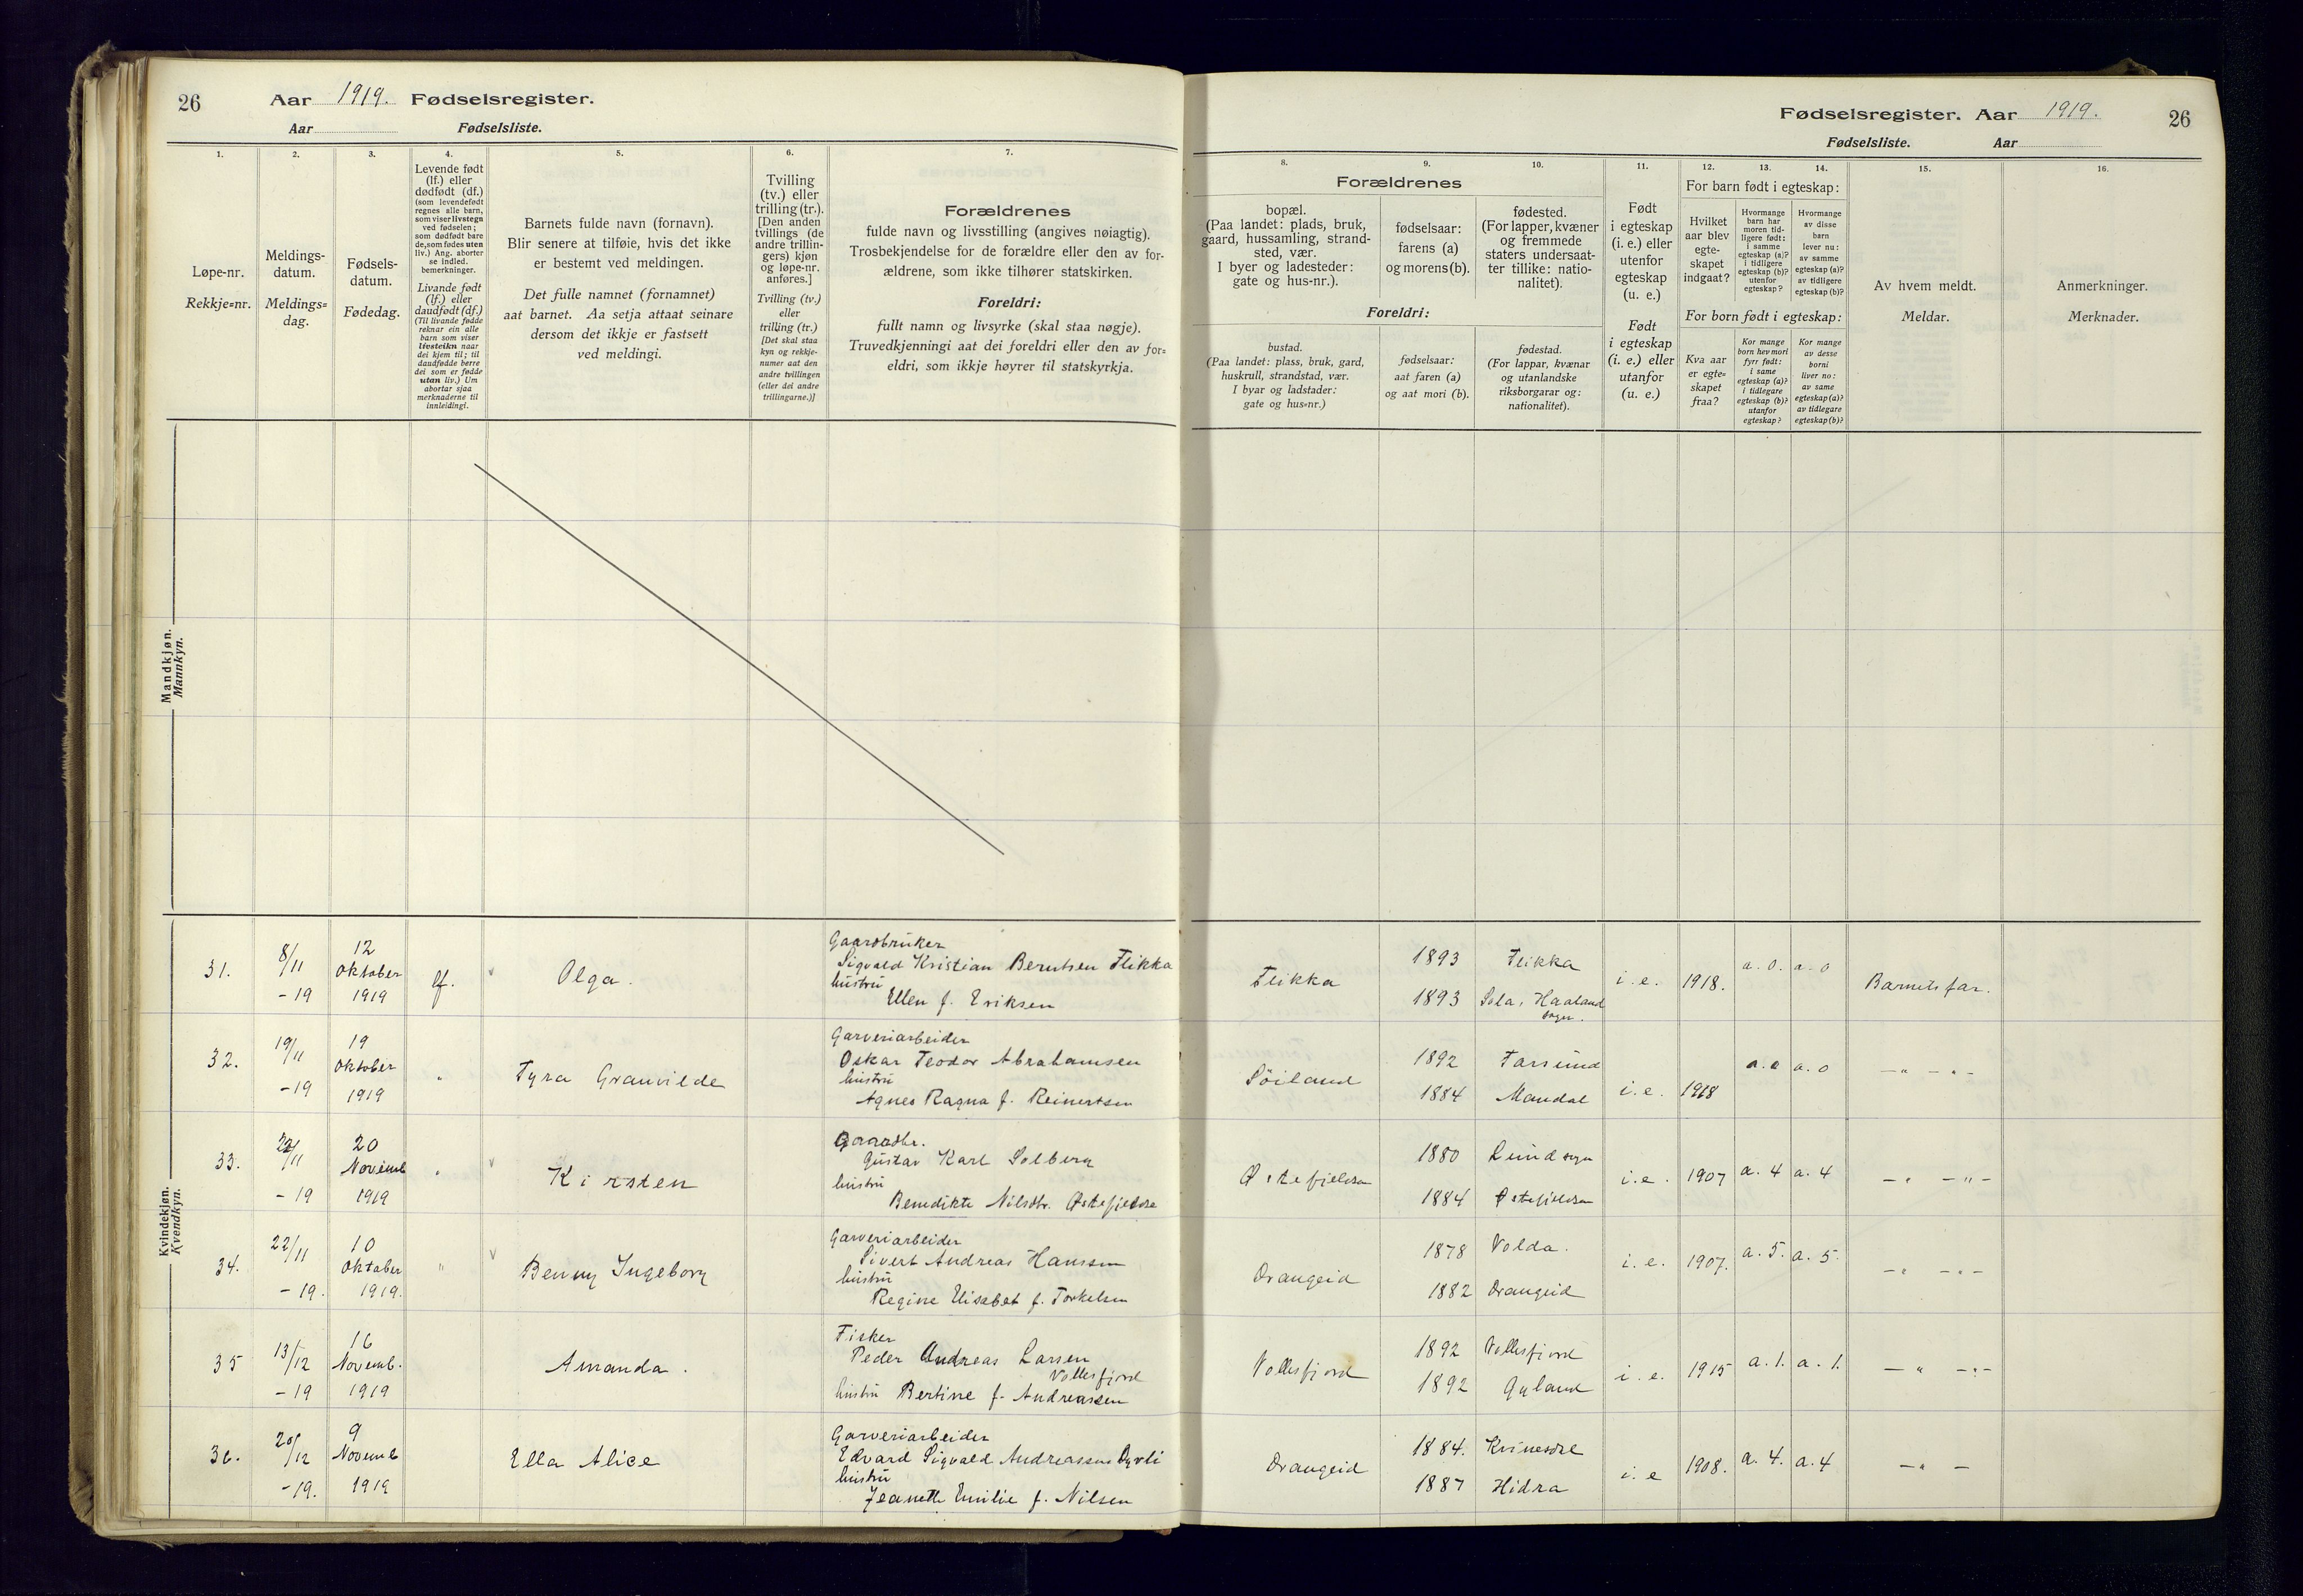 26 Aar 1919. Fødselsregister.
Aar Fødselsliste.
Fødselsregister. Aar 1919. 26
Fødselsliste. Aar
1.
Løpe-nr.
Rekkje=nr.
2.
Meldings-
datum.
Meldings=
dag.
3.
Fødsels-
datum.
Fødedag.
4.
Levende født
(lf.) eller
dødfødt (df.)
(som levendefødt
regnes alle barn,
som viser livstegn
ved fødselen;
som dødfødt bare
de, som fødes uten
liv.) Ang. aborter
se indled.
bemerkninger.
Livande født
(lf.) eller
daudfødt (df.)
(Til livande fødde
reknar ein alle
barn som viser
livsteikn naar
dei kjem til; til
daudfødde berre
dei som er fødde
utan liv.) Um
abortar sjaa
merknaderne til
innleidingi.
5.
Barnets fulde navn (fornavn).
Blir senere at tilføie, hvis det ikke
er bestemt ved meldingen.
Det fulle namnet (fornamnet)
aat barnet. Aa setja attaat seinare
dersom det ikkje er fastsett
ved meldingi.
6.
Tvilling
(tv.) eller
trilling (tr.).
[Den anden
tvillings (de
andre trillin-
gers) kjøn
og løpe-nr.
anføres.]
Tvilling (tv.)
eller
trilling (tr.)
[Det skal staa
kyn og rekkje-
numer aat den
andre tvillingen
(eller dei andre
trillingarne.)]
7.
Forældrenes
fulde navn og livsstilling (angives nøiagtig).
Trosbekjendelse for de forældre eller den av for-
ældrene, som ikke tilhører statskirken.
Foreldri:
fullt namn og livsyrke (skal staa nøgje).
Truvedkjenningi aat dei foreldri eller den av for=
eldri, som ikkje høyrer til statskyrkja.
8. 9. 10.
Forældrenes
bopæl.
(Paa landet: plads, bruk,
gaard, hussamling, strand-
sted, vær.
I byer og ladesteder:
gate og hus-nr.).
fødselsaar:
farens (a)
og morens (b).
fødested.
(For lapper, kvæner
og fremmede
staters undersaat-
ter tillike: natio-
nalitet).
Foreldri:
bustad.
(Paa landet: plass, bruk, gard,
huskrull, strandstad, vær.
I byar og ladstader:
gate og hus=nr.)
fødselsaar:
aat faren (a)
og aat mori (b).
fødestad.
(For lappar, kvænar
og utanlandske
riksborgarar og:
nationalitet).
11.
Født
i egteskap
(i. e.) eller
utenfor
egteskap
(u. e.)
Født
i egteskap
(i. e.) eller
utanfor
(u. e.)
12. 13. 14.
For barn født i egteskap:
Hvilket
aar blev
egte-
skapet
indgaat?
Hvormange
barn har
moren tid-
ligere født:
i samme
egteskap (a)?
i tidligere
egteskap (b)?
utenfor
egteskap?
Hvormange
av disse
barn
lever nu:
av samme
egteskap (a)?
av tidligere
egteskap (b)?
For born født i egteskap:
Kva aar
er egte=
skapet
fraa?
Kor mange
born hev mori
fyrr født:
i same
egteskap (a)?
i tidlegare
egteskap (b)?
utanfor
egteskap?
Kor mange
av desse
borni
liver no:
av same
egteskap (a)?
av tidlegare
egteskap (b)?
15.
Av hvem meldt.
Meldar.
16.
Anmerkninger.
Merknader.
Mandkjøn.
Mannkyn.
Kvindekjøn.
Kvendkyn.
31. 8/11 -19 12 Oktober 1919 lf. Olga.
Gaardbruker
Sigvald Kristian Berntsen Flikka
hustru
Ellen f. Eriksen
Flikka 1893 Flikka i. e. 1918. a. 0. a. 0 Barnets far.
1893 Sola, Haaland
sogn.
32. 19/11 -19 19 Oktober 1919 " Tyra Granvilde
Garveriarbeider
Oskar Teodor Abrahamsen
hustru
Agnes Ragna f. Reinertsen
Söiland 1892 Farsund i. e. 1918 a. 0 a. 0 — " — " —
1884 Mandal
33. /11 -19 20 Novemb 1919 " Kirsten
Gaardbr.
Gustav Karl Solberg
hustru
Benedikte Nilsdtr.
1880 Lund sogn i. e. 1907 a. 4 a. 4 — " — " —
1884
34. 22/11 -19. 10 Oktober 1919. " Benny Ingeborg
Garveriarbeider
Sivert Andreas Hanssen
hustru
Regine Elisabet f. Torkelsen
Drangeid 1878 Volda. i. e. 1907. a. 5. a. 5. — " — " —
1882 Drangeid
35 13/12 -19 16 Novemb. 1919 Amanda.
Fisker
Peder Andreas Larsen
Vollesfjord
hustru Bertine f. Andreassen
Vollesfjord 1892 Vollesfjord i. e. 1915 a. 1. a. 1. — " — " —
1892 Gyland
36. 20/12 -19. 9 Novemb 1919 Ella Alice
Garveriarbeider
Edvard Sigvald Andreassen Dyrli
hustru
Jeanette Emilie f. Nilsen
Drangeid 1884. Kvinesdal i. e 1908. a. 4. a. 4 — " —
1887 Hidra